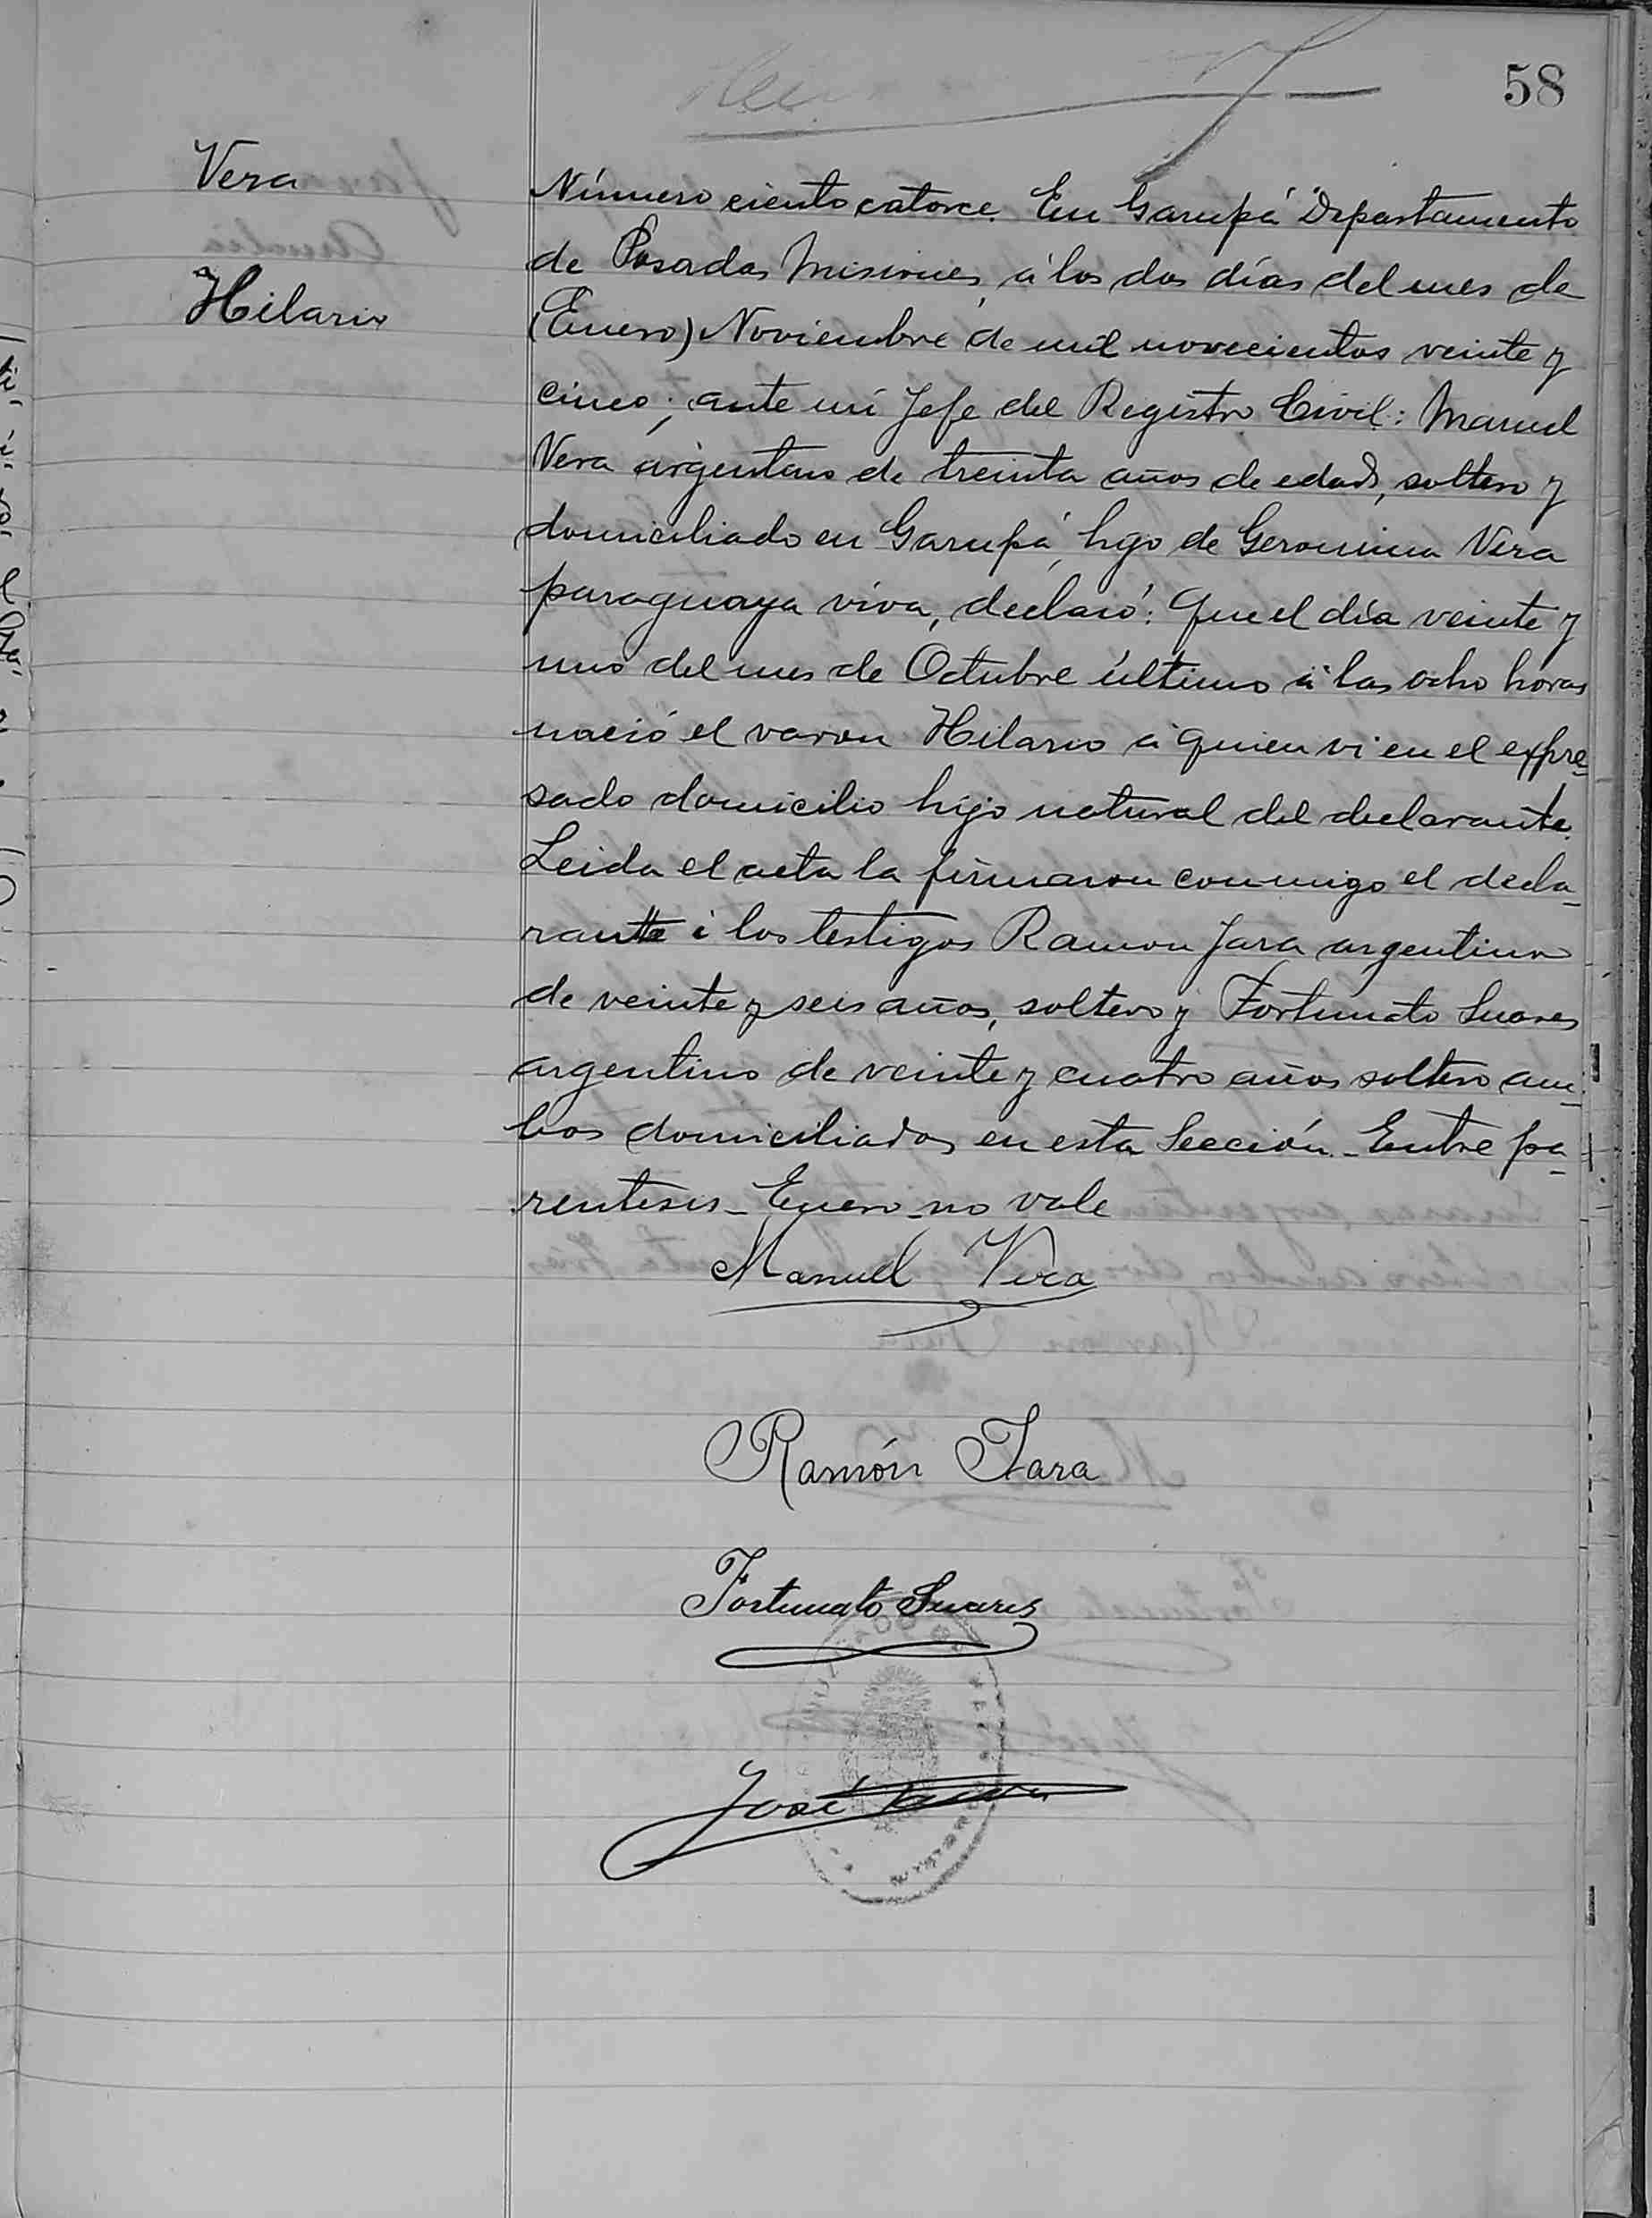 58
Vera
Hilario
Número ciento catorce. En Garupá Departamento
de Posadas Misiones, á los dos días del mes de
(Enero) Noviembre de mil novecientos veinte y
cinco; ante mi Jefe del Registro Civil: Manuel
Vera argentino de treinta años de edad, soltero y
domiciliado en Garupá, hijo de Geronima Vera
paraguaya viva, declaró: Que el día veinte y
uno del mes de Octubre último á las ocho horas
nació el varon Hilario á quien vi en el expre-
sado domicilio hijo natural del declarante.
Leida el acta la firmaron conmigo el decla-
rante i los testigos Ramon Jara argentino
de veinte y seis años, soltero y Fortunato Suares
argentino de veinte y cuatro años soltero am-
bos domiciliados en esta Sección - Entre pa-
rentesis - Enero - no vale
Manuel Vera
Ramón Jara
Fortunato Suares
José